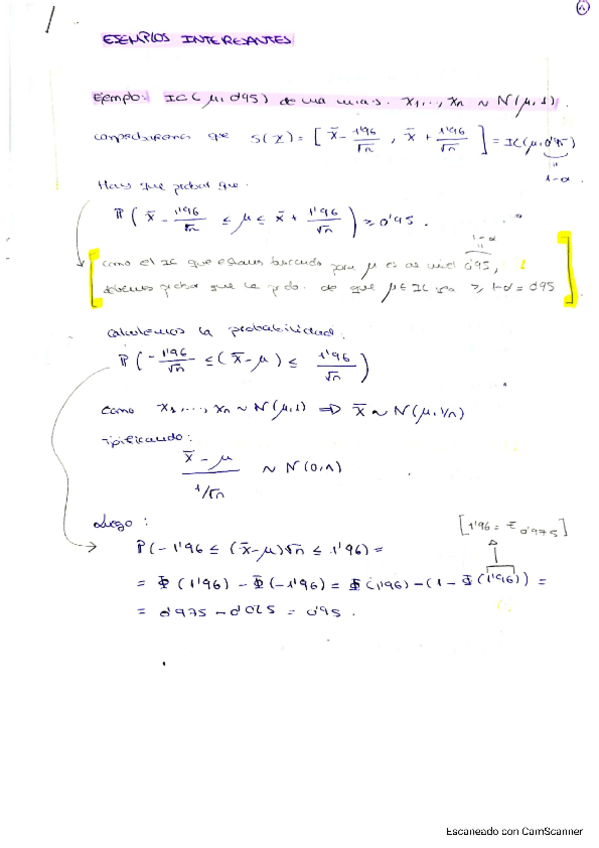 ESEMPLOS INTERESANTES
Ejemplo: IC(μ, 0'95) de una m.a.s. x₁,..., xₙ ~ N(μ, 1).
que S(x) = [x̄ - 1'96/√n , x̄ + 1'96/√n] = IC(μ, 0'95)
1-α
Hay que probar que:
P(x̄ - 1'96/√n ≤ μ ≤ x̄ + 1'96/√n) ≥ 0'95.
1-α
como el IC que estamos buscando para μ es al nivel 0'95,
debemos probar que la prob. de que μ ∈ IC sea ≥ 1-α = 0'95
Calculemos la probabilidad:
P(-1'96/√n ≤ (x̄-μ) ≤ 1'96/√n)
Como x₁,..., xₙ ~ N(μ,1) ⇒ x̄ ~ N(μ, 1/n)
Tipificando:
x̄ - μ / 1/√n ~ N(0,1)
Luego:
[1'96 = z₀'₉₇₅]
P(-1'96 ≤ (x̄-μ)√n ≤ 1'96) =
= Φ(1'96) - Φ(-1'96) = Φ(1'96) - (1 - Φ(1'96)) =
= 0'975 - 0'025 = 0'95.
Escaneado con CamScanner